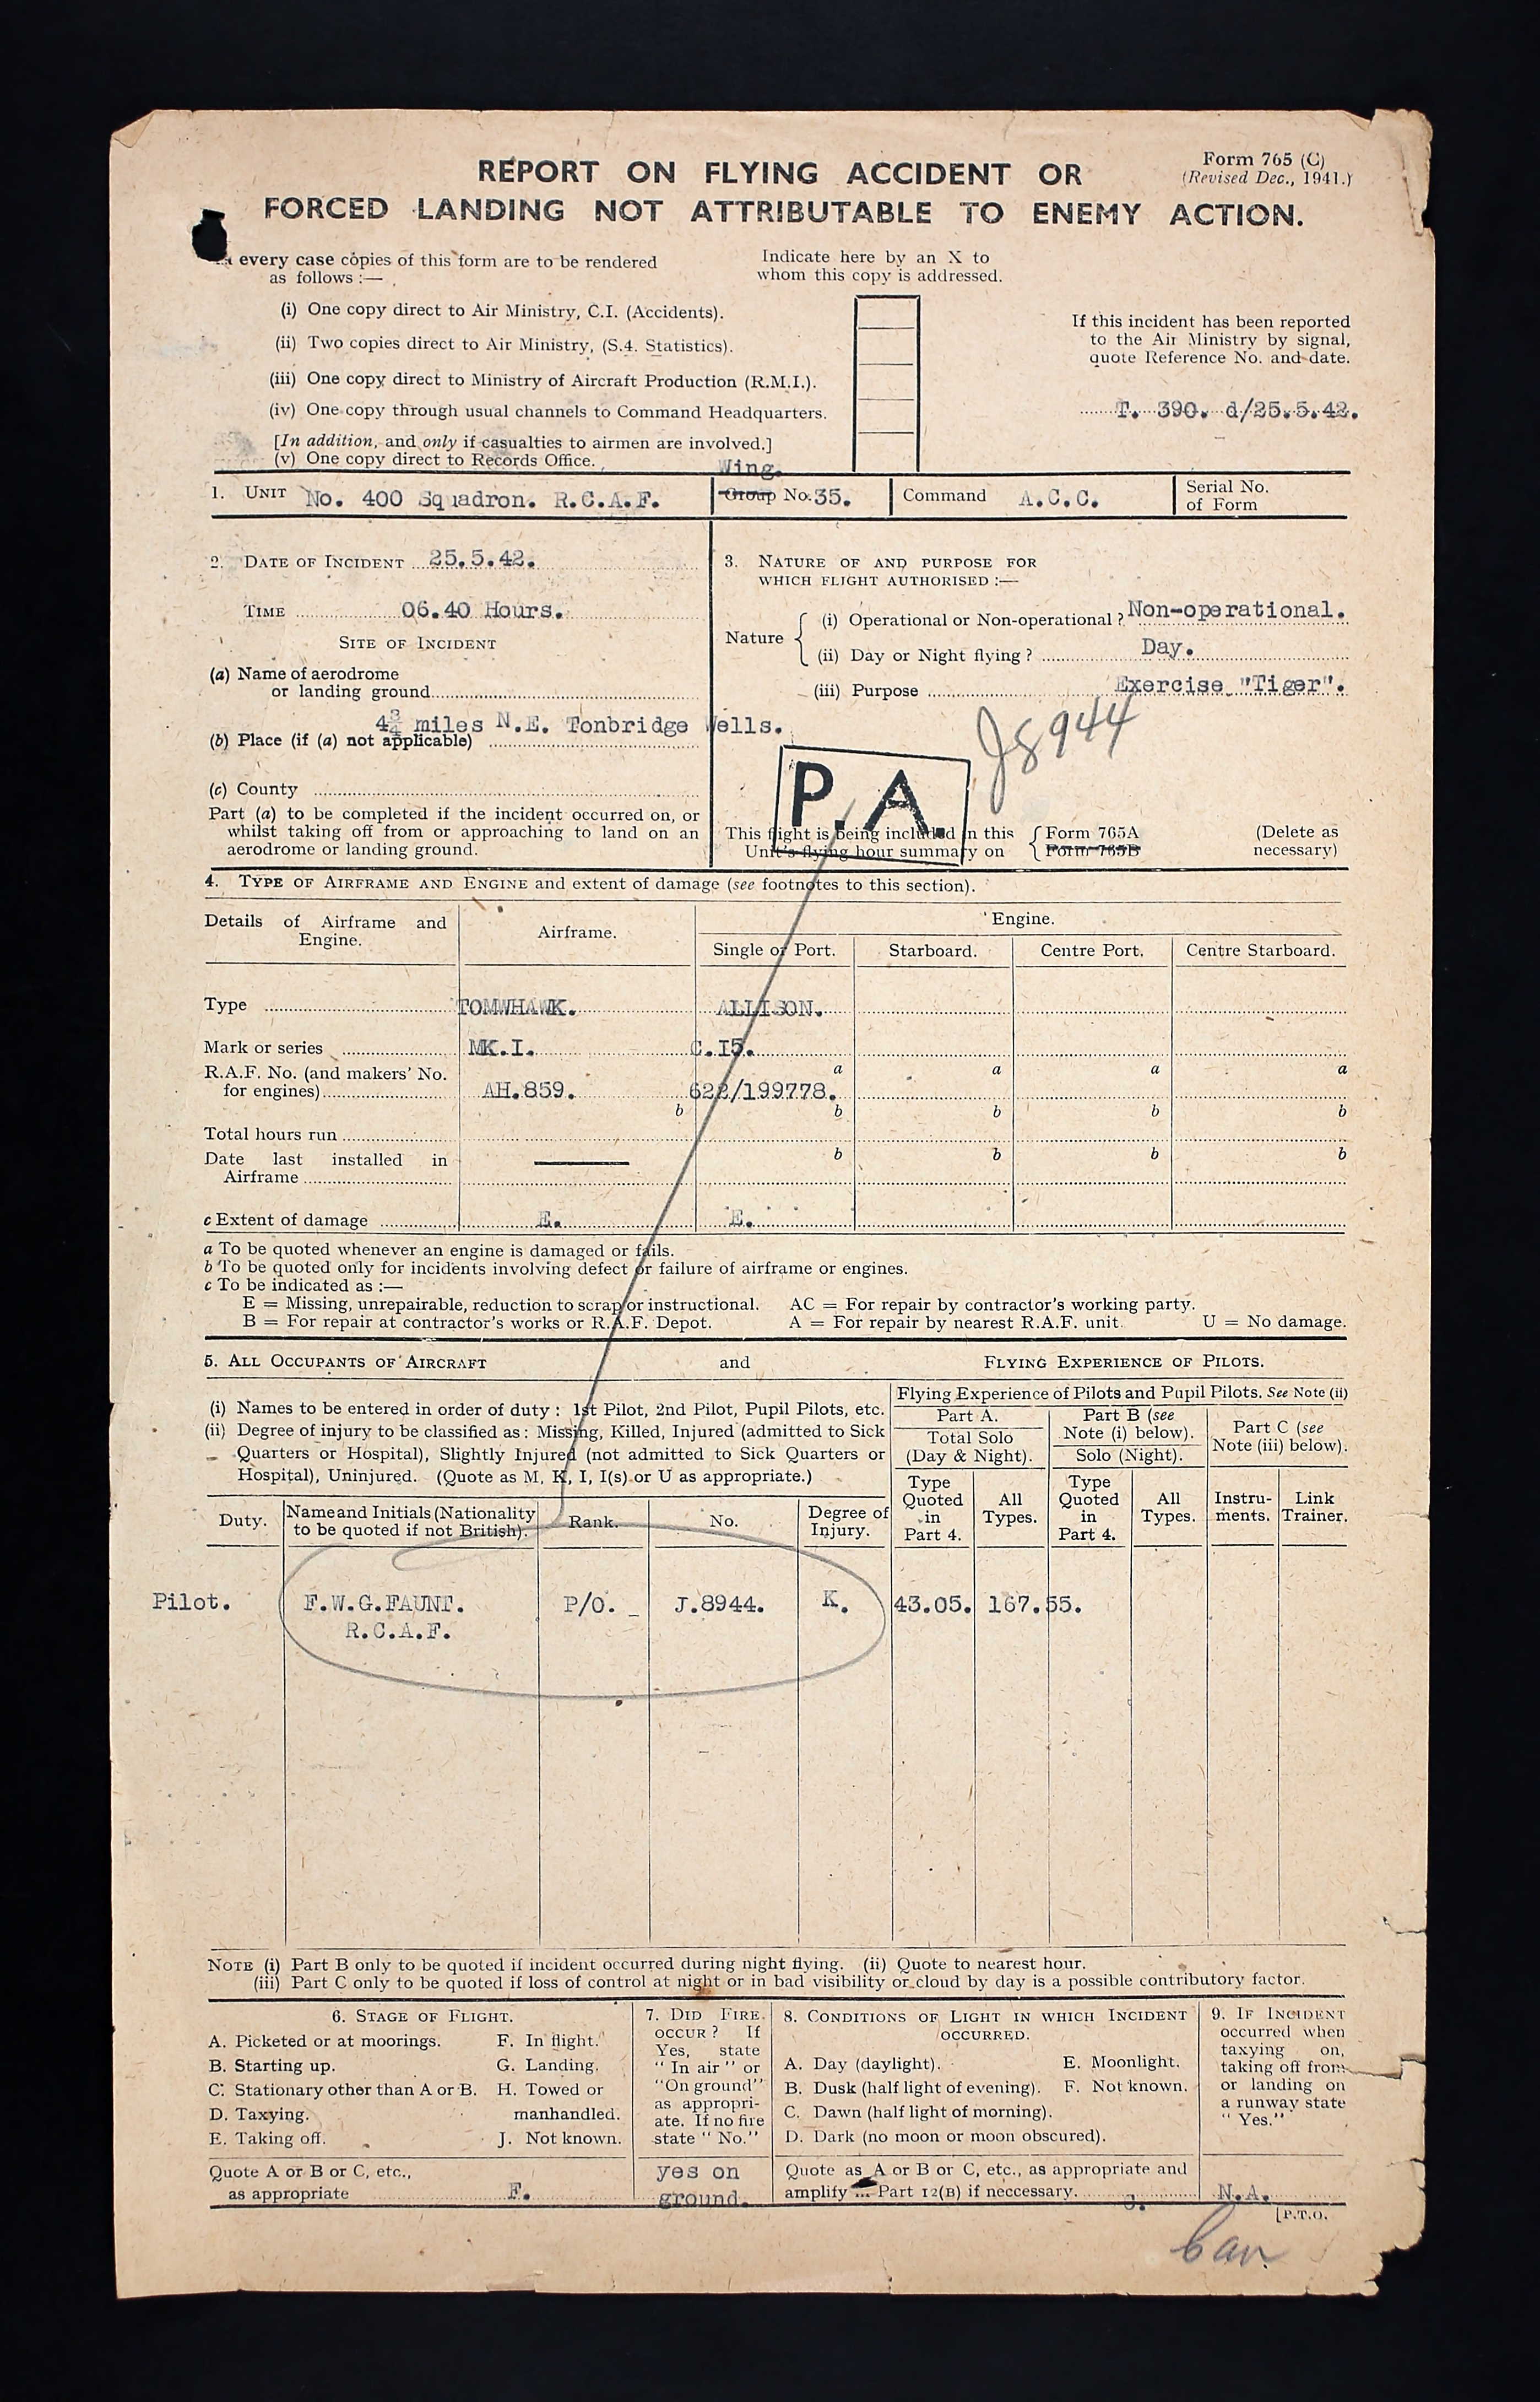 REPORT ON FLYING ACCIDENT OR
FORCED LANDING NOT ATTRIBUTABLE TO ENEMY ACTION.
Form 765 (C)
(Revised Dec., 1941.)
every case copies of this form are to be rendered
as follows :—
Indicate here by an X to
whom this copy is addressed.
(i) One copy direct to Air Ministry, C.I. (Accidents).
(ii) Two copies direct to Air Ministry, (S.4. Statistics).
(iii) One copy direct to Ministry of Aircraft Production (R.M.I.).
(iv) One copy through usual channels to Command Headquarters.
[In addition, and only if casualties to airmen are involved.]
(v) One copy direct to Records Office.
If this incident has been reported
to the Air Ministry by signal,
quote Reference No. and date.
T. 390. d/25.5.42.
Wing.
1. UNIT No. 400 Squadron. R.C.A.F.
Group No. 35.
Command A.C.C.
Serial No.
of Form
2. DATE OF INCIDENT 25.5.42.
TIME 06.40 Hours.
SITE OF INCIDENT
(a) Name of aerodrome
or landing ground
4¾ miles N.E. Tonbridge Wells.
(b) Place (if (a) not applicable)
(c) County
Part (a) to be completed if the incident occurred on, or
whilst taking off from or approaching to land on an
aerodrome or landing ground.
3. NATURE OF AND PURPOSE FOR
WHICH FLIGHT AUTHORISED :—
Nature
(i) Operational or Non-operational ? Non-operational.
(ii) Day or Night flying ? Day.
(iii) Purpose Exercise "Tiger".
J8944
P.A.
This flight is being included in this
Unit's flying hour summary on
Form 765A
Form 765B
(Delete as
necessary)
4. TYPE OF AIRFRAME AND ENGINE and extent of damage (see footnotes to this section).
Details of Airframe and
Engine.
Airframe.
Engine.
Single or Port.
Starboard.
Centre Port.
Centre Starboard.
Type TOMWHAWK. ALLISON.
Mark or series MK.I. C.I5.
R.A.F. No. (and makers' No.
for engines) AH.859. 622/199778.
a a a a
b b b b b
Total hours run
Date last installed in
Airframe
b b b b
c Extent of damage E. E.
a To be quoted whenever an engine is damaged or fails.
b To be quoted only for incidents involving defect or failure of airframe or engines.
c To be indicated as :—
E = Missing, unrepairable, reduction to scrap or instructional. AC = For repair by contractor's working party.
B = For repair at contractor's works or R.A.F. Depot. A = For repair by nearest R.A.F. unit. U = No damage.
5. ALL OCCUPANTS OF AIRCRAFT and FLYING EXPERIENCE OF PILOTS.
(i) Names to be entered in order of duty : 1st Pilot, 2nd Pilot, Pupil Pilots, etc.
(ii) Degree of injury to be classified as : Missing, Killed, Injured (admitted to Sick
Quarters or Hospital), Slightly Injured (not admitted to Sick Quarters or
Hospital), Uninjured. (Quote as M, K, I, I(s) or U as appropriate.)
Flying Experience of Pilots and Pupil Pilots. See Note (ii)
Part A.
Total Solo
(Day & Night).
Part B (see
Note (i) below).
Solo (Night).
Part C (see
Note (iii) below).
Duty.
Name and Initials (Nationality
to be quoted if not British).
Rank.
No.
Degree of
Injury.
Type
Quoted
in
Part 4.
All
Types.
Type
Quoted
in
Part 4.
All
Types.
Instru-
ments.
Link
Trainer.
Pilot. F.W.G.FAUNT. P/O. J.8944. K. 43.05. 167.55.
R.C.A.F.
NOTE (i) Part B only to be quoted if incident occurred during night flying. (ii) Quote to nearest hour.
(iii) Part C only to be quoted if loss of control at night or in bad visibility or cloud by day is a possible contributory factor.
6. STAGE OF FLIGHT.
A. Picketed or at moorings.
B. Starting up.
C. Stationary other than A or B.
D. Taxying.
E. Taking off.
F. In flight.
G. Landing.
H. Towed or
manhandled.
J. Not known.
Quote A or B or C, etc.,
as appropriate F.
7. DID FIRE
OCCUR ? If
Yes, state
"In air" or
"On ground"
as appropri-
ate. If no fire
state "No."
yes on
ground.
8. CONDITIONS OF LIGHT IN WHICH INCIDENT
OCCURRED.
A. Day (daylight).
B. Dusk (half light of evening).
C. Dawn (half light of morning).
D. Dark (no moon or moon obscured).
E. Moonlight.
F. Not known.
Quote as A or B or C, etc., as appropriate and
amplify Part 12(B) if neccessary.
9. IF INCIDENT
occurred when
taxying on,
taking off from
or landing on
a runway state
"Yes."
N.A.
[P.T.O.
Can